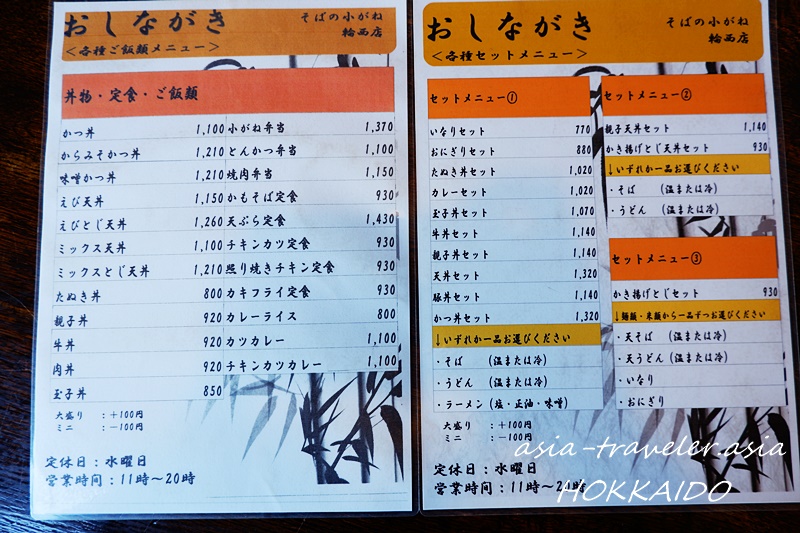 おしながき
そばの小がね
輪西店
<各種ご飯類メニュー>
丼物・定食・ご飯類
かつ丼 1,100 小がね弁当 1,370
からみそかつ丼 1,210 とんかつ弁当 1,100
味噌かつ丼 1,210 焼肉弁当 1,150
えび天丼 1,150 かもそば定食 930
えびとじ天丼 1,260 天ぷら定食 1,430
ミックス天丼 1,100 チキンカツ定食 930
ミックスとじ天丼 1,210 照り焼きチキン定食 930
たぬき丼 800 カキフライ定食 930
親子丼 920 カレーライス 800
牛丼 920 カツカレー 1,100
肉丼 920 チキンカツカレー 1,100
玉子丼 850
大盛り :+100円
ミニ :-100円
定休日:水曜日
営業時間:11時~20時
おしながき
そばの小がね
輪西店
<各種セットメニュー>
セットメニュー①
いなりセット 770
おにぎりセット 880
たぬき丼セット 1,020
カレーセット 1,020
玉子丼セット 1,070
牛丼セット 1,140
親子丼セット 1,140
天丼セット 1,320
豚丼セット 1,140
かつ丼セット 1,320
↓いずれか一品お選びください
・そば (温または冷)
・うどん (温または冷)
・ラーメン(塩・正油・味噌)
大盛り :+100円
ミニ :-100円
定休日:水曜日
営業時間:11時~20時
セットメニュー②
親子天丼セット 1,140
かき揚げとじ天丼セット 930
↓いずれか一品お選びください
・そば (温または冷)
・うどん (温または冷)
セットメニュー③
かき揚げとじセット 930
↓麺類・米類から一品ずつお選びください
・天そば (温または冷)
・天うどん(温または冷)
・いなり
・おにぎり
asia-traveler.asia
HOKKAIDO